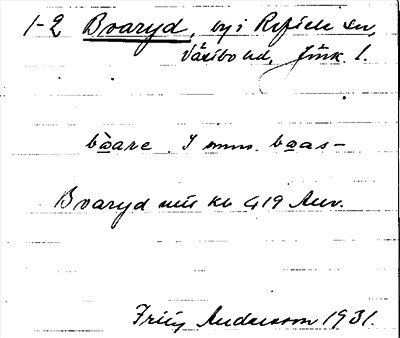 1-2 Boaryd, by i Reftele sn,
Västbo hd, Jönk. l.
båare. I sms. båas-
Boaryd mtl kb 419 Auv.
Fritz Andersson 1931.